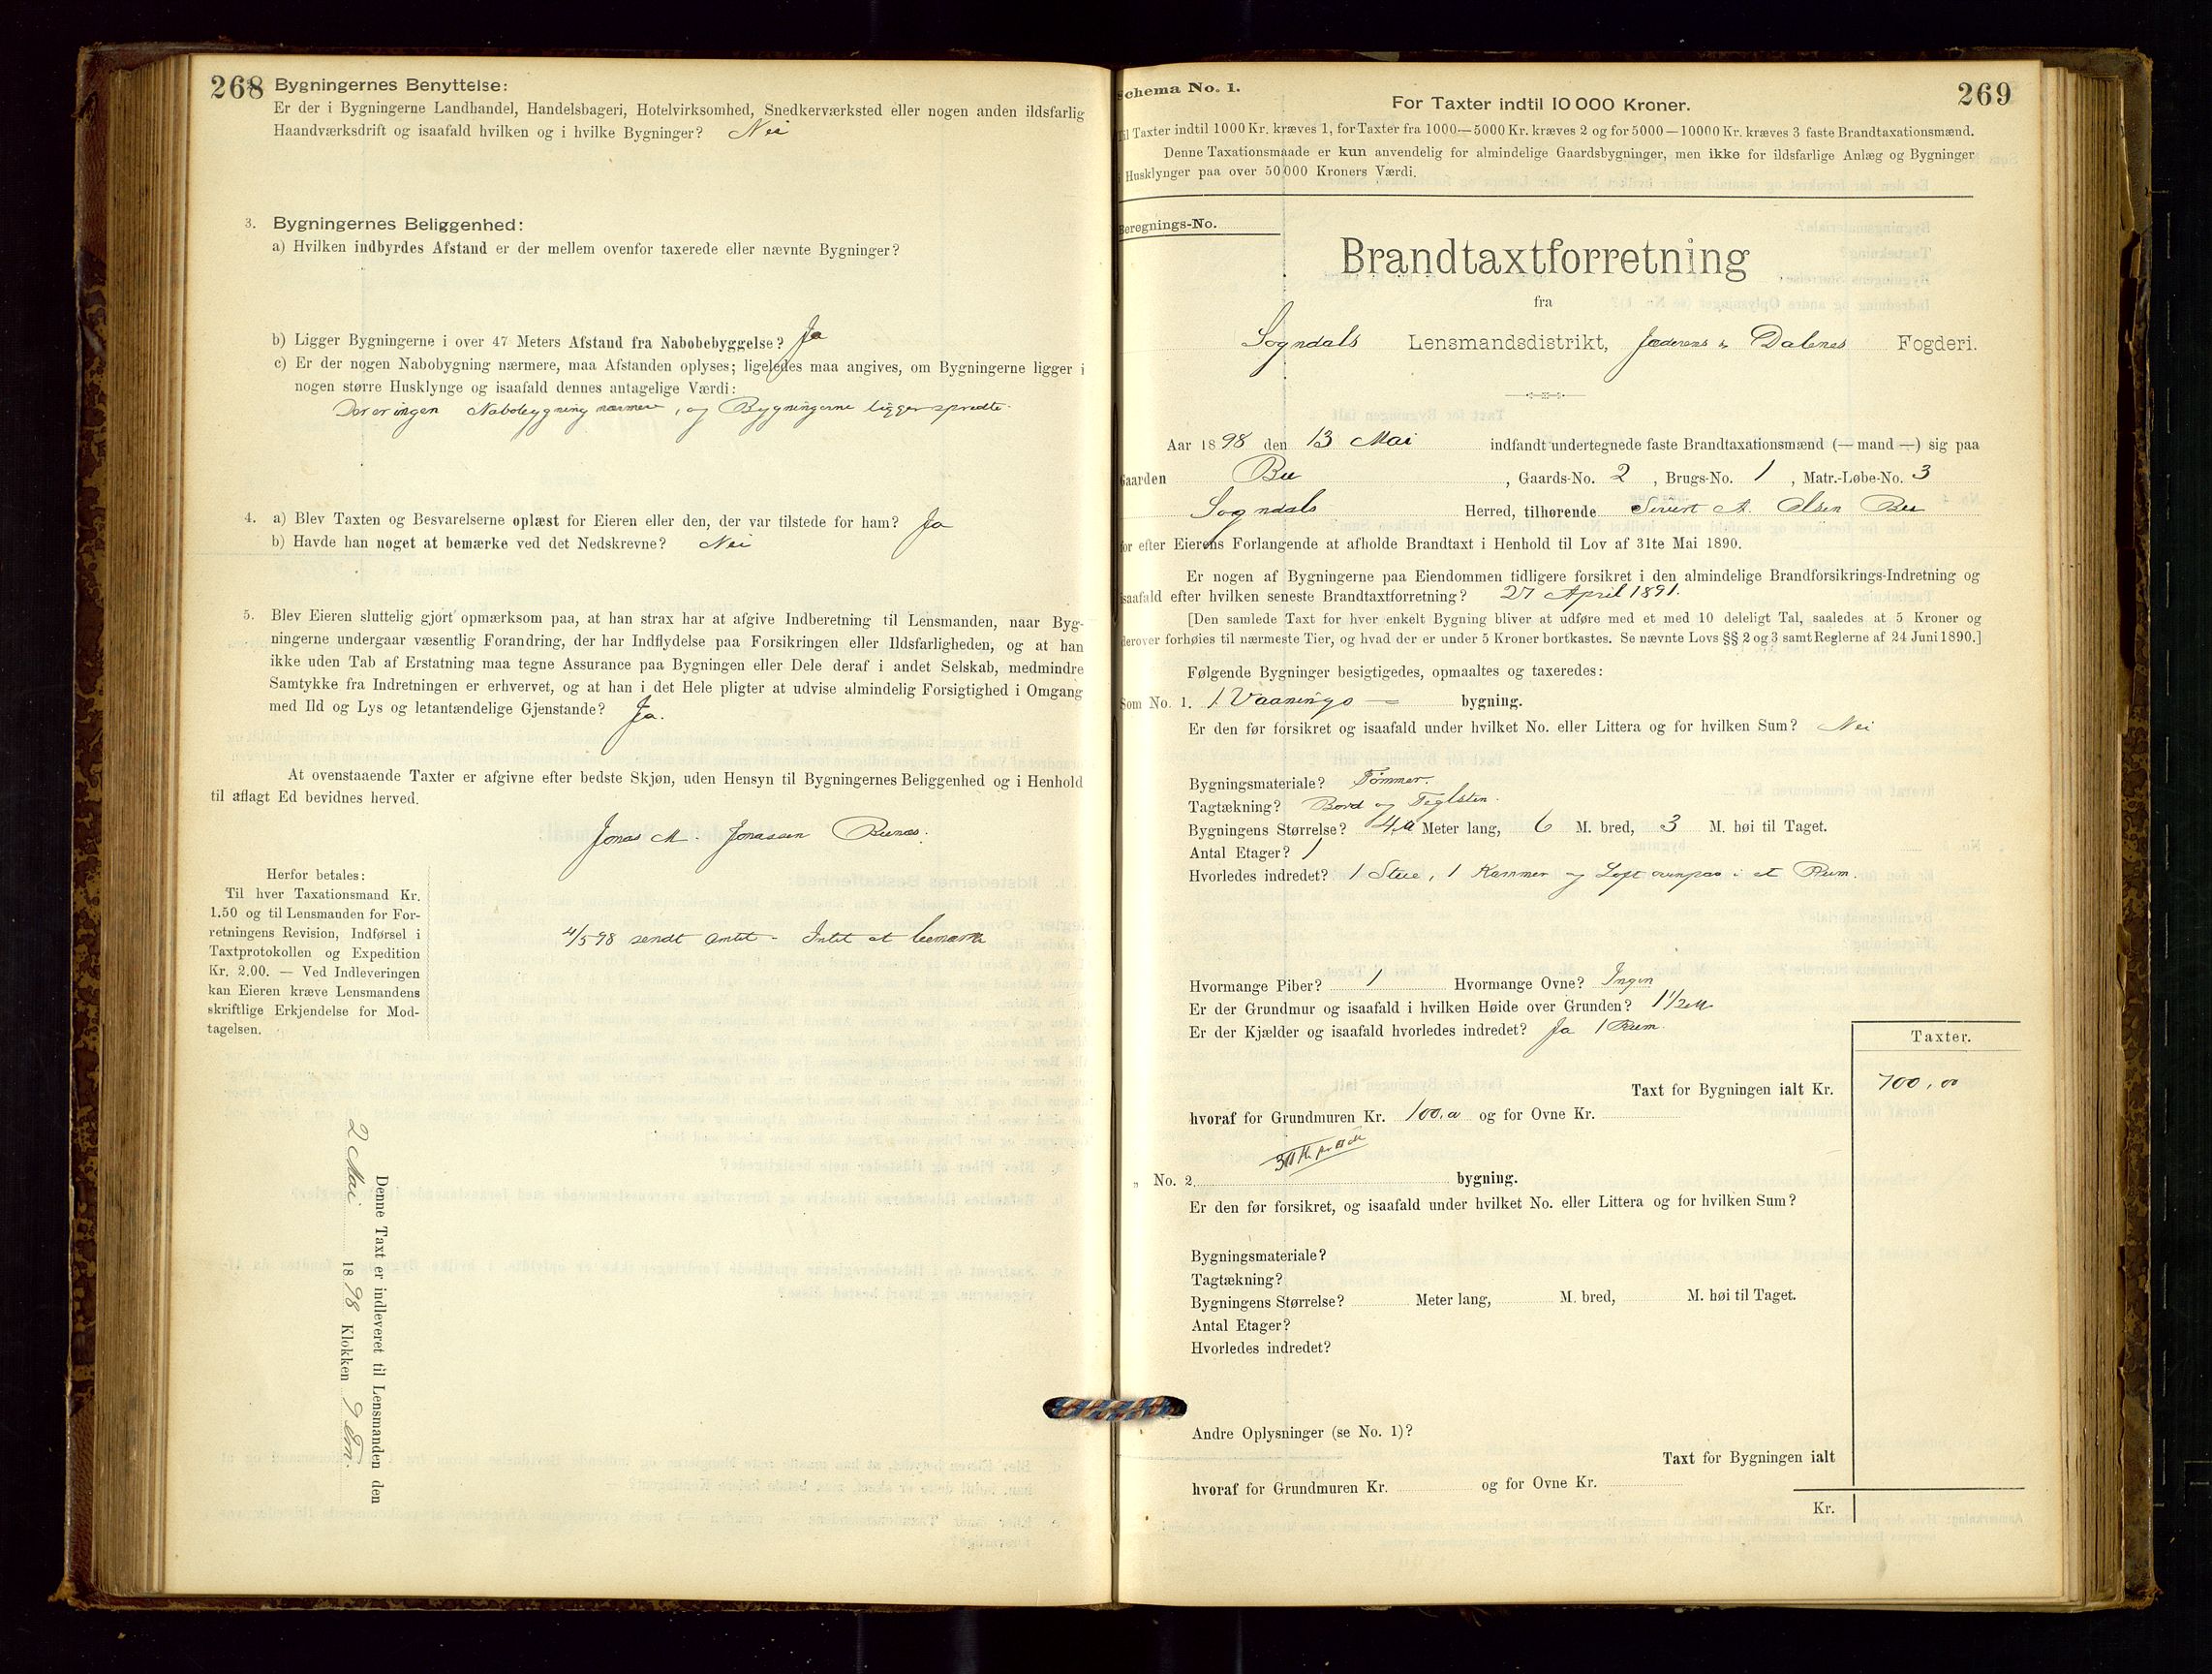 268
Bygningernes Benyttelse:
Er der i Bygningerne Landhandel, Handelsbageri, Hotelvirksomhed, Snedkerværksted eller nogen anden ildsfarlig
Haandværksdrift og isaafald hvilken og i hvilke Bygninger? Nei
3. Bygningernes Beliggenhed:
a) Hvilken indbyrdes Afstand er der mellem ovenfor taxerede eller nævnte Bygninger?
b) Ligger Bygningerne i over 47 Meters Afstand fra Nabobebyggelse? Ja
c) Er der nogen Nabobygning nærmere, maa Afstanden oplyses; ligeledes maa angives, om Bygningerne ligger i
nogen større Husklynge og isaafald dennes antagelige Værdi:
Der er ingen Nabobygning nærmere, og Bygningerne ligger spredte.
4. a) Blev Taxten og Besvarelserne oplæst for Eieren eller den, der var tilstede for ham? Ja
b) Havde han noget at bemærke ved det Nedskrevne? Nei
5. Blev Eieren sluttelig gjort opmærksom paa, at han strax har at afgive Indberetning til Lensmanden, naar Byg-
ningerne undergaar væsentlig Forandring, der har Indflydelse paa Forsikringen eller Ildsfarligheden, og at han
ikke uden Tab af Erstatning maa tegne Assurance paa Bygningen eller Dele deraf i andet Selskab, medmindre
Samtykke fra Indretningen er erhvervet, og at han i det Hele pligter at udvise almindelig Forsigtighed i Omgang
med Ild og Lys og letantændelige Gjenstande? Ja.
At ovenstaaende Taxter er afgivne efter bedste Skjøn, uden Hensyn til Bygningernes Beliggenhed og i Henhold
til aflagt Ed bevidnes herved.
Jonas M. Jonassen
Herfor betales:
Til hver Taxationsmand Kr.
1.50 og til Lensmanden for For-
retningens Revision, Indførsel i
Taxtprotokollen og Expedition
Kr. 2.00. — Ved Indleveringen
kan Eieren kræve Lensmandens
skriftlige Erkjendelse for Mod-
tagelsen.
4/5 98 sendt Amtet - Intet at bemærke
Denne Taxt er indleveret til Lensmanden den
2 Mai 1898 Klokken 9 Em.
Schema No. 1.
269
For Taxter indtil 10 000 Kroner.
Til Taxter indtil 1000 Kr. kræves 1, for Taxter fra 1000—5000 Kr. kræves 2 og for 5000—10000 Kr. kræves 3 faste Brandtaxationsmænd.
Denne Taxationsmaade er kun anvendelig for almindelige Gaardsbygninger, men ikke for ildsfarlige Anlæg og Bygninger
i Husklynger paa over 50 000 Kroners Værdi.
Beregnings-No.
Brandtaxtforretning
fra
Sogndals Lensmandsdistrikt, Jæderens & Dalenes Fogderi.
Aar 1898 den 13 Mai indfandt undertegnede faste Brandtaxationsmænd (— mand —) sig paa
Gaarden Bu , Gaards-No. 2 , Brugs-No. 1 , Matr.-Løbe-No. 3
Sogndals Herred, tilhørende Sivert A. Olsen Bu
for efter Eierens Forlangende at afholde Brandtaxt i Henhold til Lov af 31te Mai 1890.
Er nogen af Bygningerne paa Eiendommen tidligere forsikret i den almindelige Brandforsikrings-Indretning og
isaafald efter hvilken seneste Brandtaxtforretning? 27 April 1891.
[Den samlede Taxt for hver enkelt Bygning bliver at udføre med et med 10 deleligt Tal, saaledes at 5 Kroner og
derover forhøies til nærmeste Tier, og hvad der er under 5 Kroner bortkastes. Se nævnte Lovs §§ 2 og 3 samt Reglerne af 24 Juni 1890.]
Følgende Bygninger besigtigedes, opmaaltes og taxeredes:
Som No. 1. 1 Vaanings bygning.
Er den før forsikret og isaafald under hvilket No. eller Littera og for hvilken Sum? Nei
Bygningsmateriale? Tømmer.
Tagtækning? Bord og Teglsten.
Bygningens Størrelse? Meter lang, 6 M. bred, 3 M. høi til Taget.
Antal Etager? 1
Hvorledes indredet? 1 Stue, 1 Kammer og Loft ovenpaa i et Rum.
Hvormange Piber? 1 Hvormange Ovne? Ingen
Er der Grundmur og isaafald i hvilken Høide over Grunden? 1 1/2 M
Er der Kjælder og isaafald hvorledes indredet? Ja 1 Rum.
Taxter.
Taxt for Bygningen ialt Kr. 700,00
hvoraf for Grundmuren Kr. 100,00 og for Ovne Kr.
„ No. 2 bygning.
Er den før forsikret, og isaafald under hvilket No. eller Littera og for hvilken Sum?
Bygningsmateriale?
Tagtækning?
Bygningens Størrelse? Meter lang, M. bred, M. høi til Taget.
Antal Etager?
Hvorledes indredet?
Andre Oplysninger (se No. 1)?
Taxt for Bygningen ialt
hvoraf for Grundmuren Kr. og for Ovne Kr.
Kr.